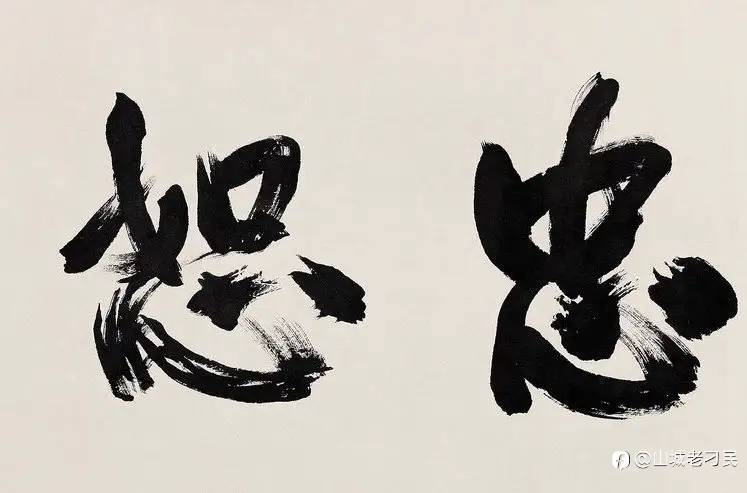 忠恕
@山城老刁民